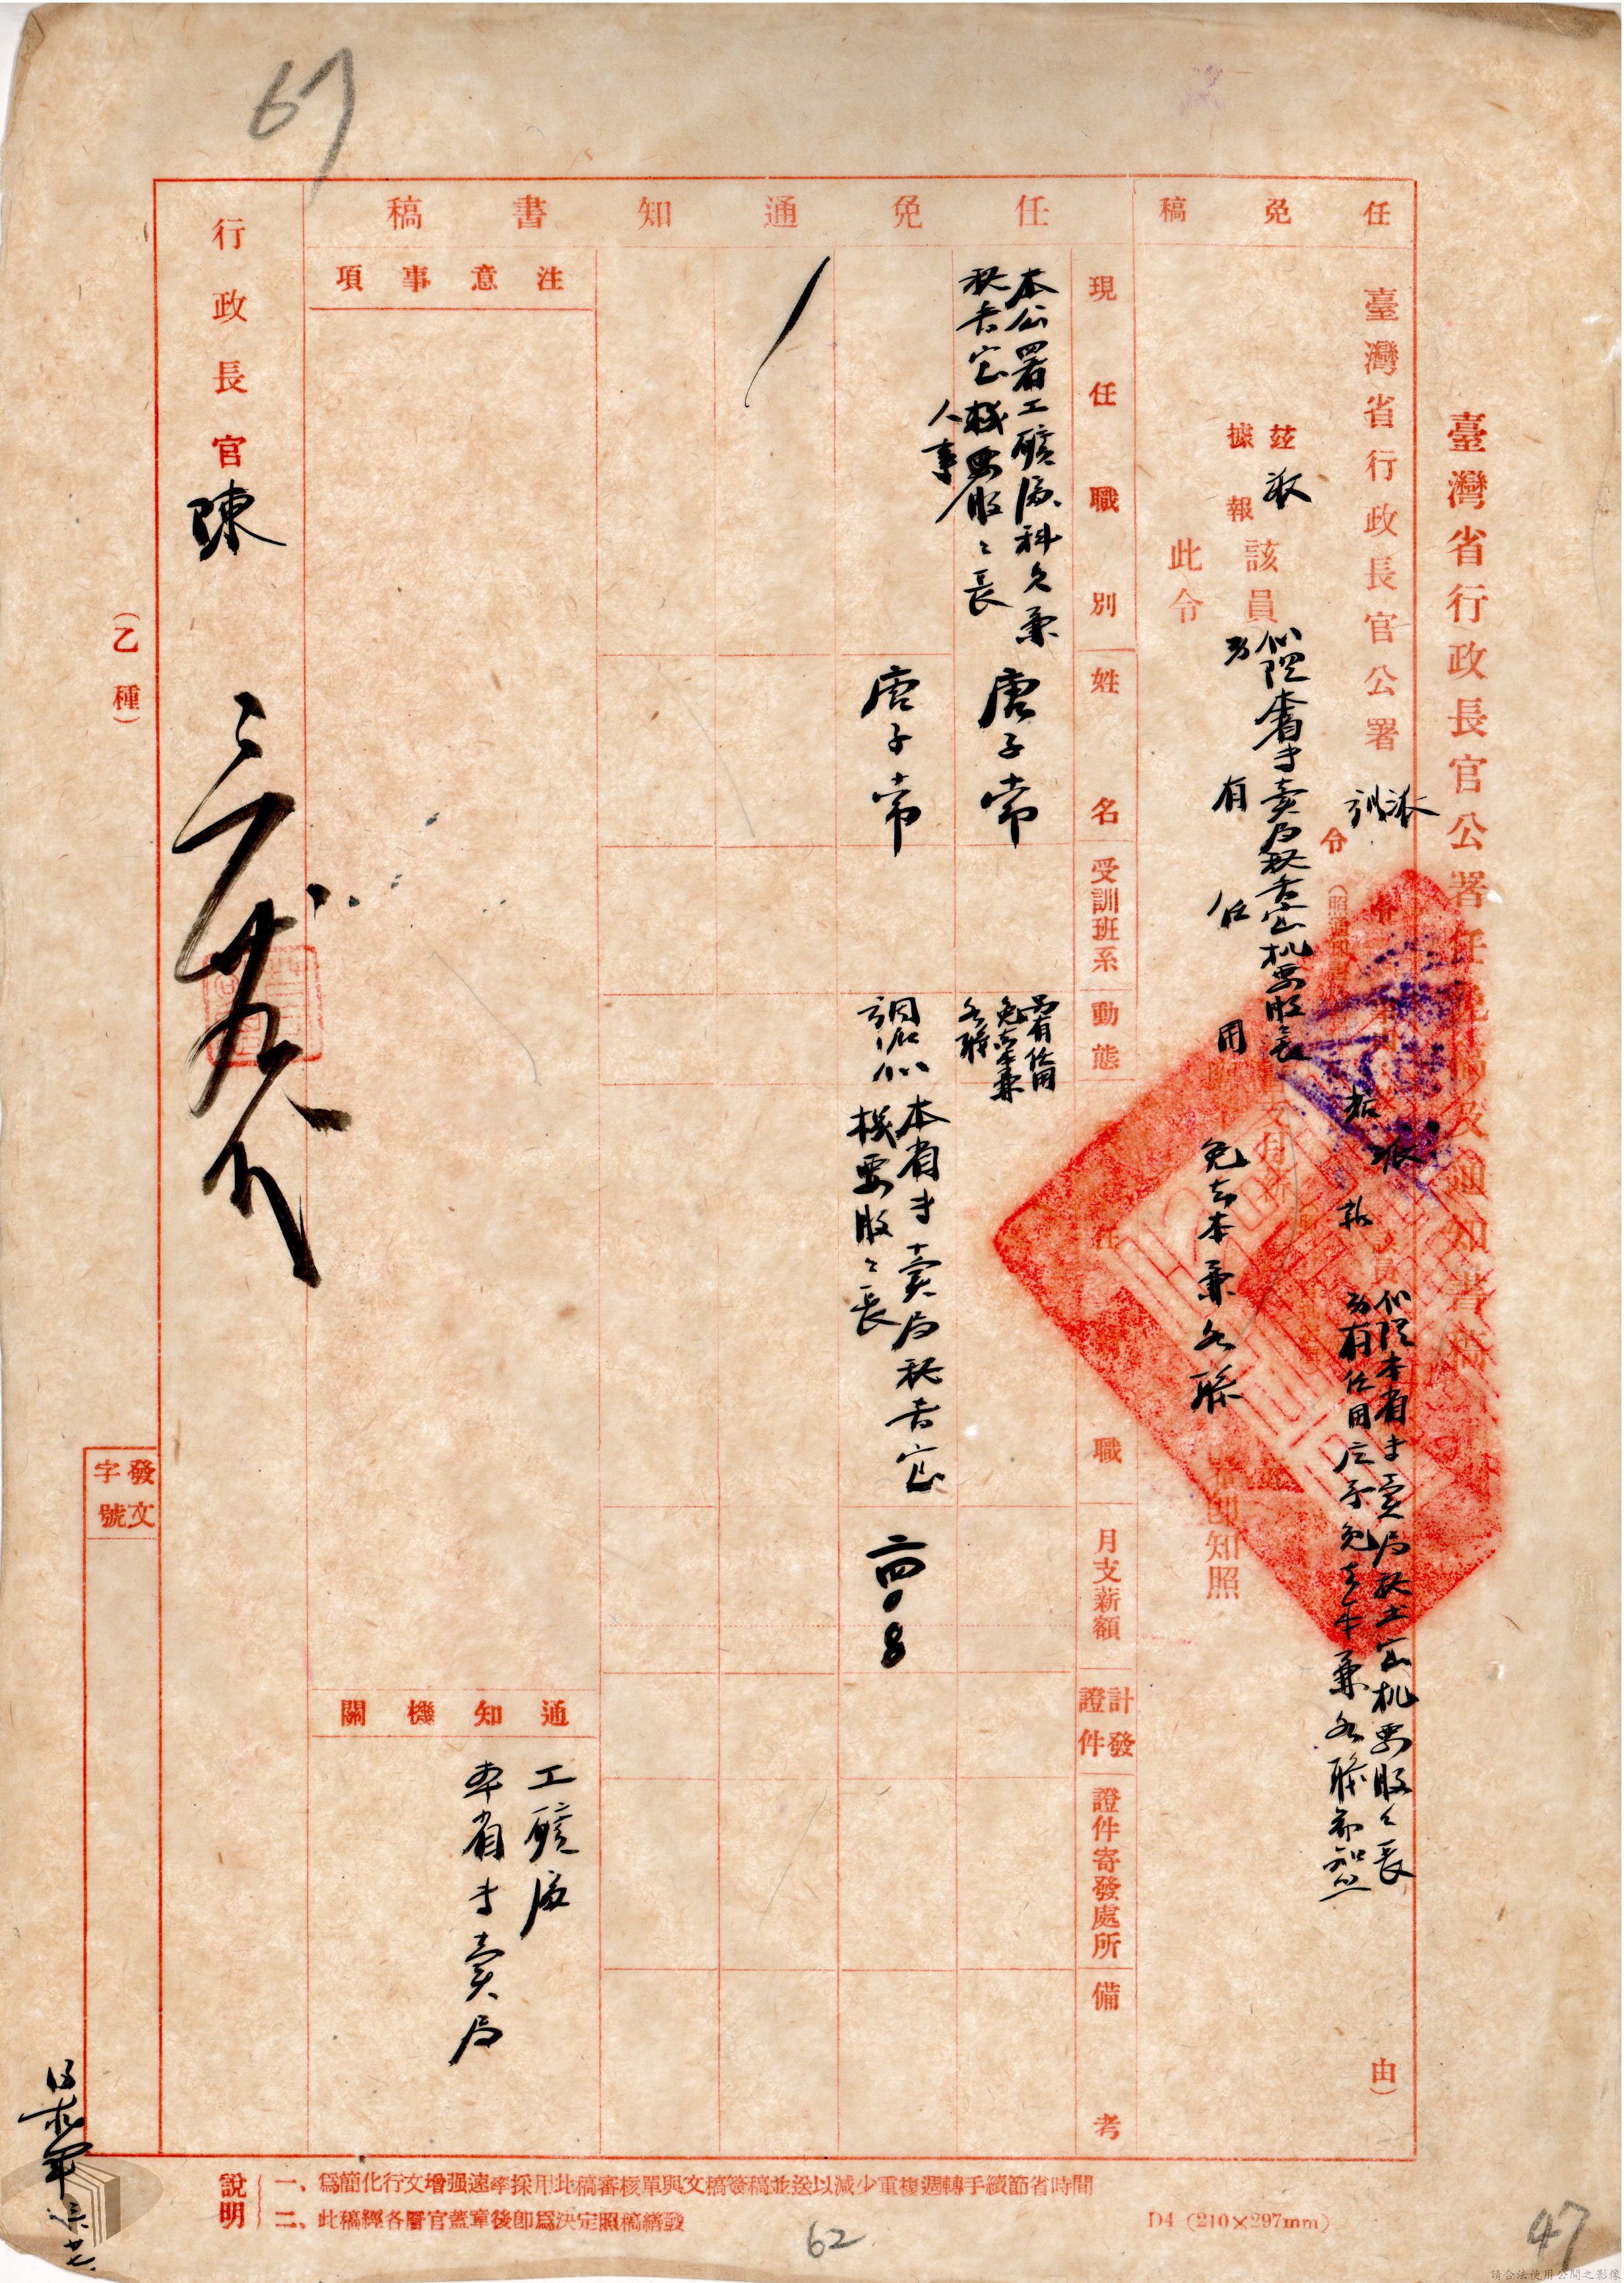 67
臺灣省行政長官公署任免稿及通知書稿
任免稿
臺灣省行政長官公署
派
訓
令
由）
據報
茲派
該員
此令
另有任用
免去本兼各職
知照
擬派本省專賣局秘書室機要股股長
另有任用應予免去本兼各職
任免通知書稿
現任職別
姓名
受訓班系
動態
任職
月支薪額
計發證件
證件寄發處所
備考
本公署工礦處科員兼
秘書室機要股股長
人事
唐子常
另有任用
免去本兼
各職
唐子常
調派
本省專賣局秘書室
機要股股長
二四〇
注意事項
通知機關
工礦處
本省專賣局
行政長官陳
（乙種）
發文
字號
說明
一、爲簡化行文增强速率採用此稿審核單與文稿簽稿並送以減少重複週轉手續節省時間
二、此稿經各層官蓋章後卽爲決定照稿繕發
D4 (210×297mm)
62
47
請合法使用公開之影像